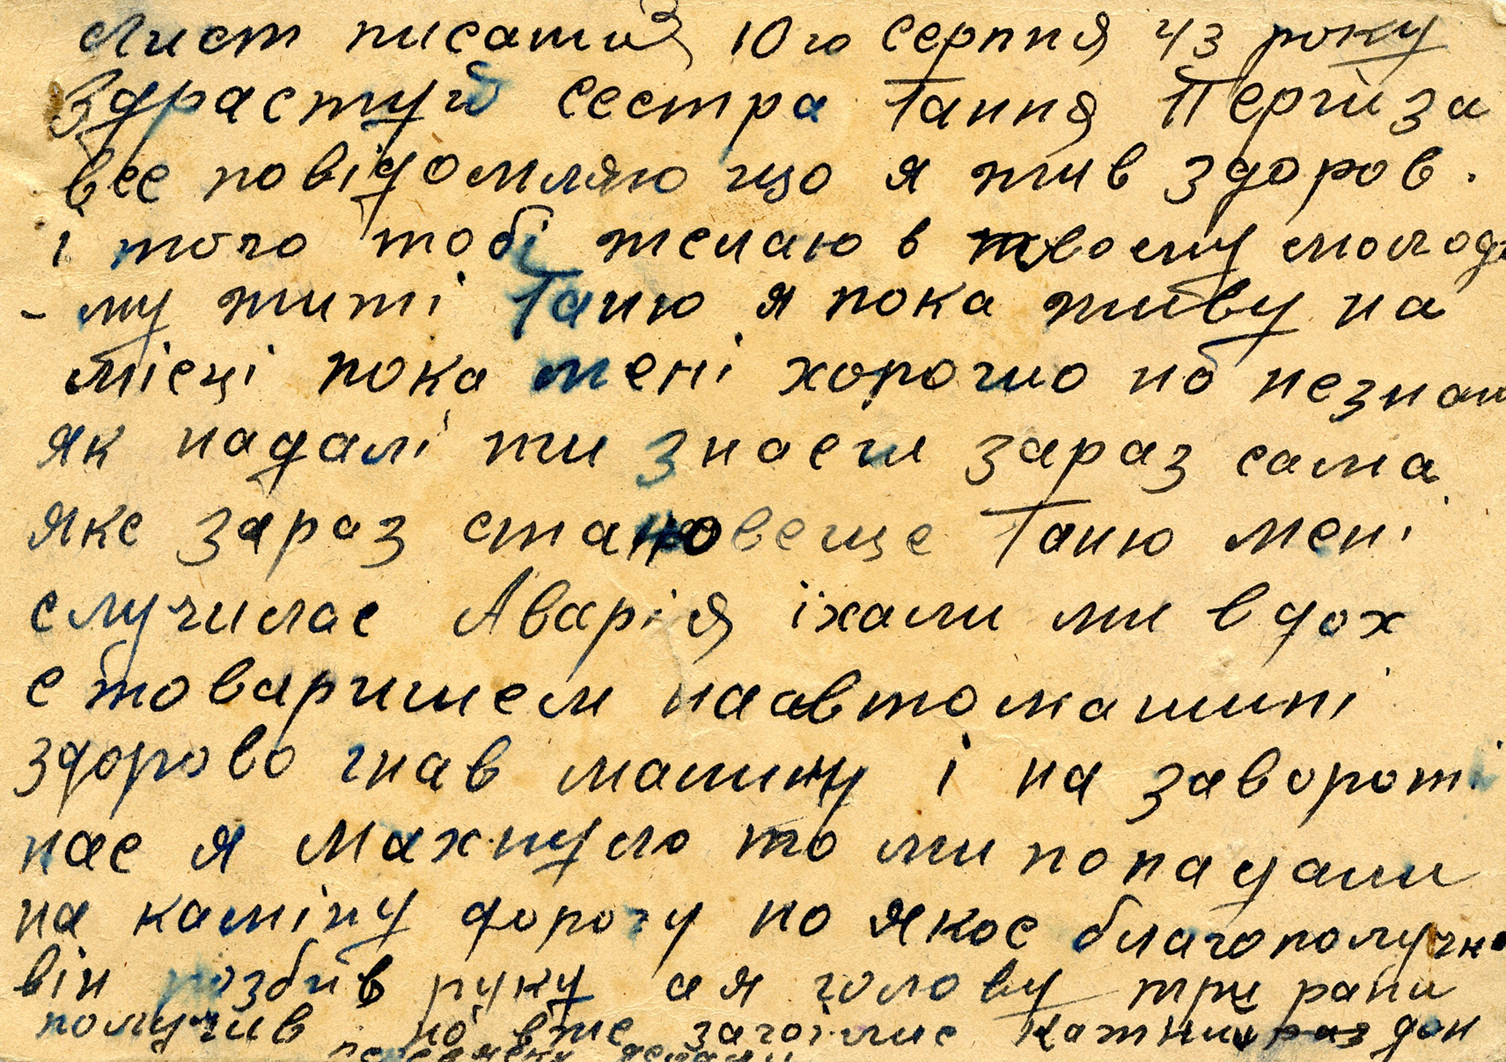 Лист писатиз 10го серпня 43 року
Здрастуй сестра Тання Пергііза
все повідомляю що я жив здоров.
і того тобі желаю в твоєму молодо
-му житі Таню я пока живу на
місці пока мені хорошо но незнаю
як надалі ти знаєш зараз сама
яке зараз становеще Таню мені
случилас Аварія їхали ми вдох
с товаришем наавтомашині
здорово гнав машину і на завороті
нас я махнуло то ми попадали
на каміну дорогу но якос благополучно
він розбив руку а я голову три рани
получив но вже загоїлис кажний раз дон